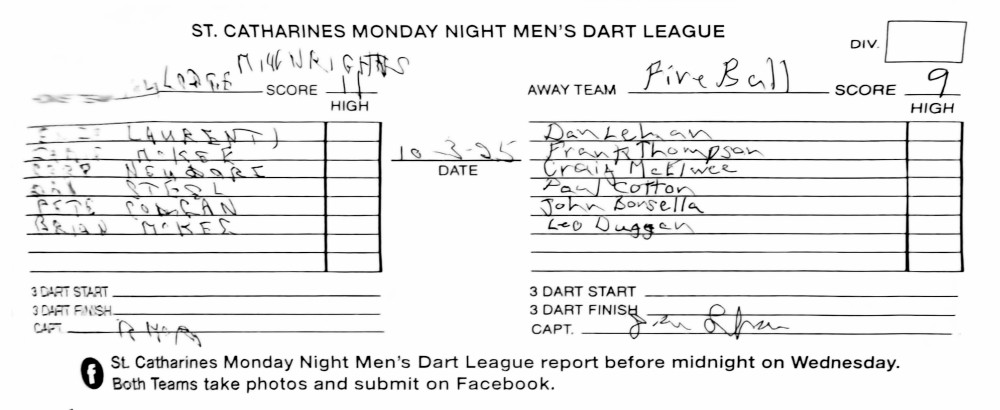 ST. CATHARINES MONDAY NIGHT MEN'S DART LEAGUE
DIV.
LODGE MILLWRIGHTS SCORE 11
HIGH
AWAY TEAM Fire Ball SCORE 9
HIGH
LAURENTI
McKEE
STEEL
PETE
BRIAN McKEE
10-3-25
DATE
Dan Lehman
Frank Thompson
Craig McElwee
Paul Cotton
John Borsella
Leo Duggan
3 DART START
3 DART FINISH
CAPT.
3 DART START
3 DART FINISH
CAPT.
St. Catharines Monday Night Men's Dart League report before midnight on Wednesday.
Both Teams take photos and submit on Facebook.